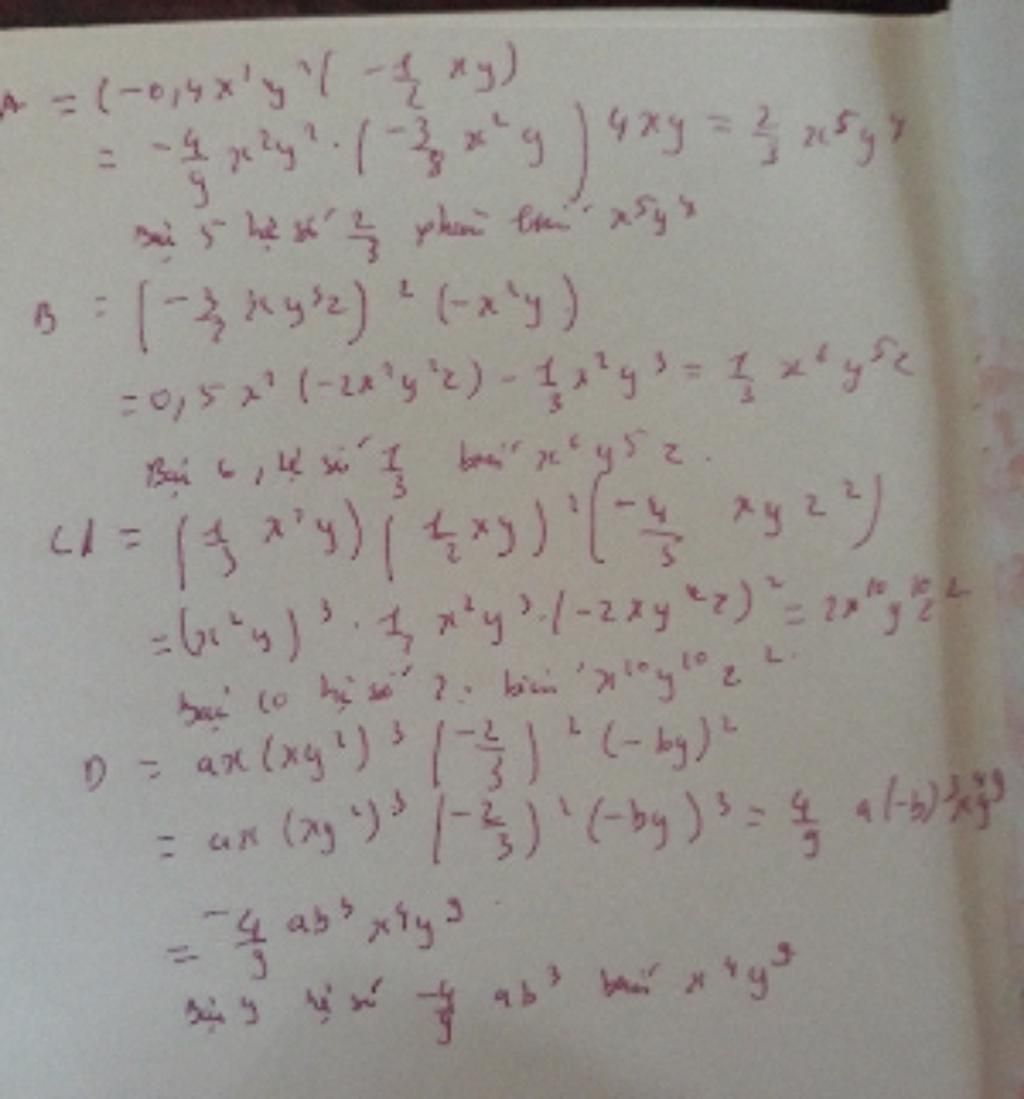 A = (-0,4x²y²( -1/2 xy)
= -4/9 x²y². (-3/8 x²y) 4xy = 2/3 x⁵y⁴
Bậc 5 hệ số 2/3 phần biến x⁵y⁴
B = (-3/2 xy³z)² (-x²y)
=0,5x² (-2x²y²z) - 1/3 x²y³ = 1/3 x⁶y⁵z
Bậc 6, hệ số 1/3 biến x⁶y⁵z.
C/ = (1/3 x²y)(1/2 xy)²(-4/3 xyz²)
=(x²y)³. x²y³.(-2xy²z)² = 2x¹⁰y¹⁰z²
bậc 10 hệ số 2. biến x¹⁰y¹⁰z².
D = ax(xy²)³ (-2/3)² (-by)²
= ax (xy²)³ (-2/3)² (-by)³ = 4/9 a(-b)³x⁴y⁹
= -4/9 ab³x⁴y⁹
Bậc 9 hệ số -4/9 ab³ biến x⁴y⁹